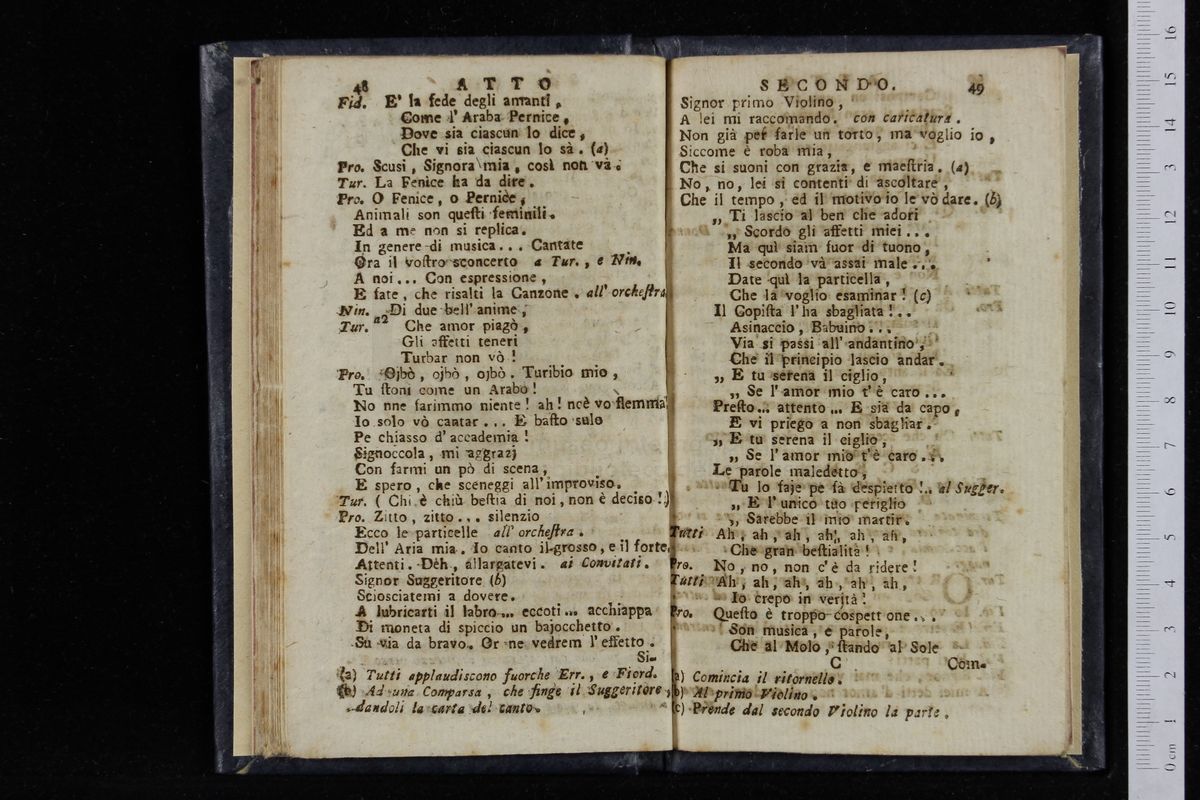 48 ATTO
Fid. E' la fede degli amanti,
Come l' Araba Pernice,
Dove sia ciascun lo dice,
Che vi sia ciascun lo sà. (a)
Pro. Scusi, Signora mia, così non và.
Tur. La Fenice ha da dire.
Pro. O Fenice, o Pernice,
Animali son questi feminili.
Ed a me non si replica.
In genere di musica... Cantate
Ora il vostro sconcerto a Tur., e Nin.
A noi... Con espressione,
E fate, che risalti la Canzone. all' orchestra
Nin. Di due bell' anime,
Tur. a2 Che amor piagò,
Gli affetti teneri
Turbar non vò!
Pro. Ojbò, ojbò, ojbò. Turibio mio,
Tu stoni come un Arabo!
No nne farimmo niente! ah! ncè vo flemma!
Io solo vò cantar... E basto sulo
Pe chiasso d' accademia!
Signoccola, mi aggrazj
Con farmi un pò di scena,
E spero, che sceneggi all' improviso.
Tur. ( Chi è chiù bestia di noi, non è deciso!)
Pro. Zitto, zitto... silenzio
Ecco le particelle all' orchestra.
Dell' Aria mia. Io canto il grosso, e il forte,
Attenti. Deh, allargatevi. ai Convitati.
Signor Suggeritore (b)
Sciosciatemi a dovere.
A lubricarti il labro... eccoti... acchiappa
Di moneta di spiccio un bajocchetto.
Su via da bravo. Or ne vedrem l' effetto.
Si-
(a) Tutti applaudiscono fuorche Err., e Fiord.
(b) Ad una Comparsa, che finge il Suggeritore,
dandoli la carta del canto.
SECONDO. 49
Signor primo Violino,
A lei mi raccomando. con caricatura.
Non già per farle un torto, ma voglio io,
Siccome è roba mia,
Che si suoni con grazia, e maestria. (a)
No, no, lei si contenti di ascoltare,
Che il tempo, ed il motivo io le vò dare. (b)
„ Ti lascio al ben che adori
„ Scordo gli affetti miei...
Ma quì siam fuor di tuono,
Il secondo và assai male...
Date quì la particella,
Che la voglio esaminar! (c)
Il Copista l' ha sbagliata!..
Asinaccio, Babuino...
Via si passi all' andantino,
Che il principio lascio andar.
„ E tu serena il ciglio,
„ Se l' amor mio t' è caro...
Presto... attento... E sia da capo,
E vi priego a non sbagliar.
„ E tu serena il ciglio,
„ Se l' amor mio t'è caro...
Le parole maledetto,
Tu lo faje pe fà despietto!.. al Sugger.
„ E l' unico tuo periglio
„ Sarebbe il mio martir.
Tutti Ah, ah, ah, ah, ah, ah,
Che gran bestialità!
Pro. No, no, non c' è da ridere!
Tutti Ah, ah, ah, ah, ah, ah,
Io crepo in verità!
Pro. Questo è troppo cospettone...
Son musica, e parole,
Che al Molo, stando al Sole
C Com-
(a) Comincia il ritornello.
(b) Al primo Violino.
(c) Prende dal secondo Violino la parte.
0 cm 1 2 3 4 5 6 7 8 9 10 11 12 13 14 15 16